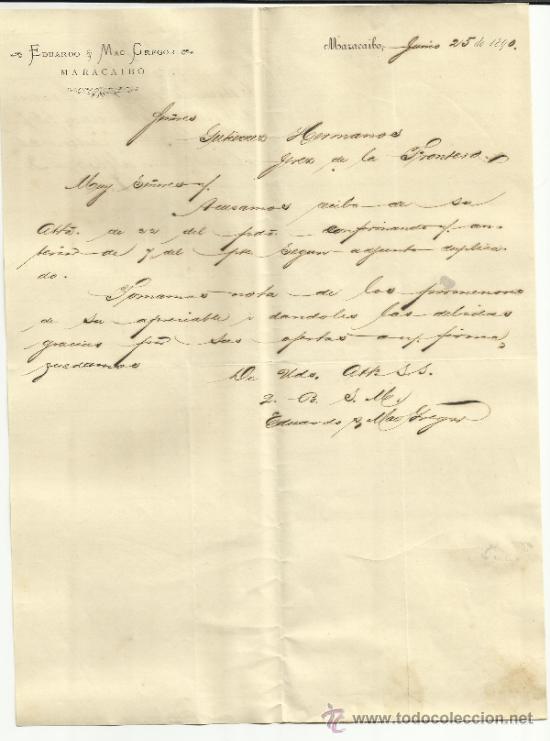 Eduardo & Mac Gregor
MARACAIBO
Maracaibo, Junio 25 de 1890.
Señores
Gutierrez Hermanos
Jerez de la Frontera
Muy Señores
Acusamos recibo de su
Atta. de 22 del ppdo. confirmando an-
terior de 7 del pte segun adjunto duplica-
do.
Tomamos nota de los pormenores
de su apreciable y dandoles las debidas
gracias por sus ofertas
quedamos
De Uds. Atts SS.
Q. B. S. M.
Eduardo & Mac Gregor
www.todocoleccion.net